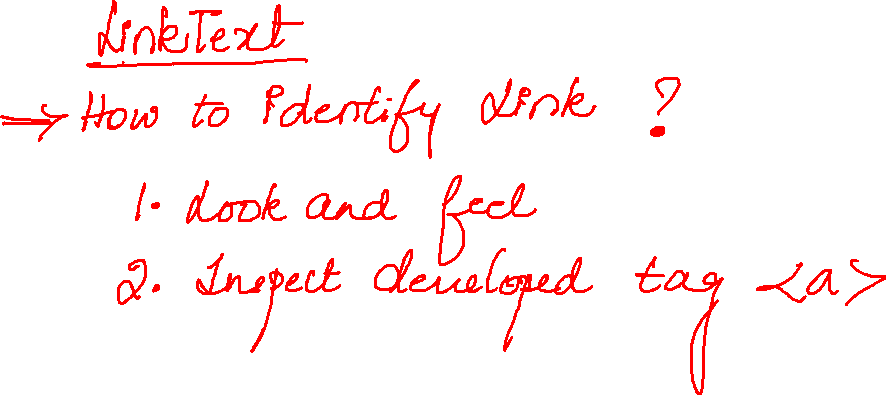 LinkText
⇒ How to identify Link ?
1. Look and feel
2. Inspect developed tag <a>